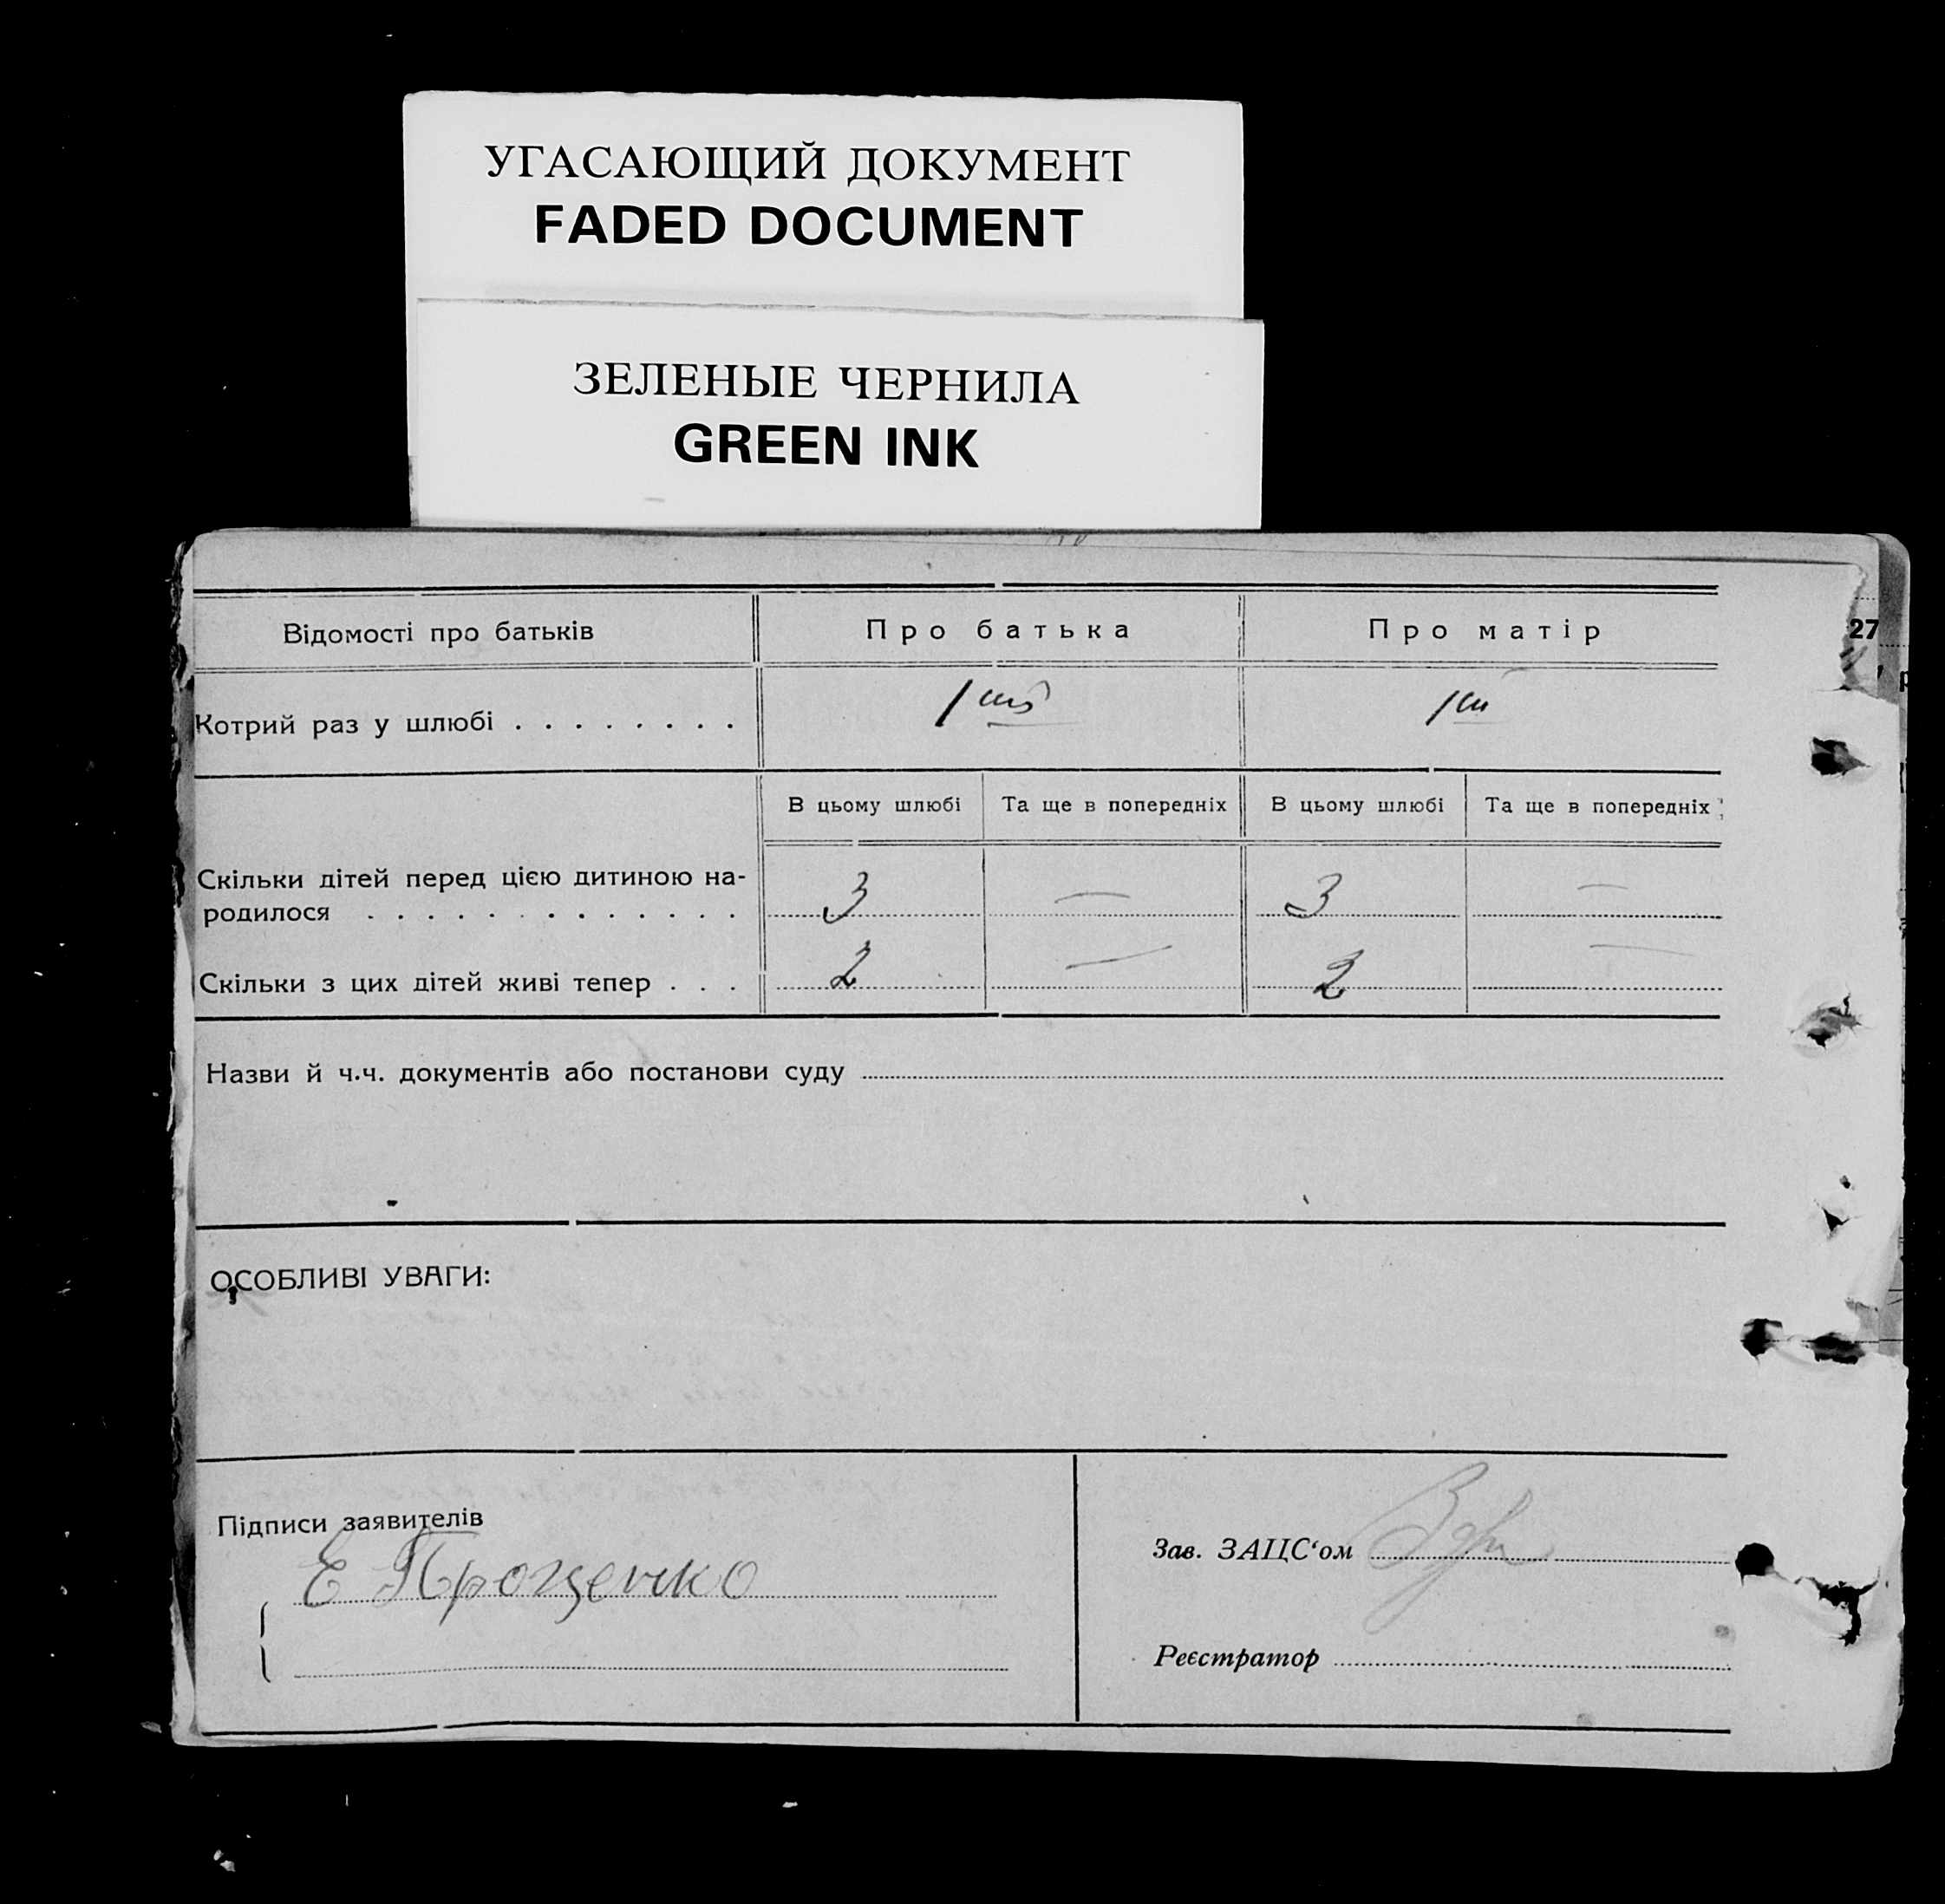 УГАСАЮЩИЙ ДОКУМЕНТ
FADED DOCUMENT
ЗЕЛЕНЫЕ ЧЕРНИЛА
GREEN INK
Відомості про батьків Про батька Про матір
27
Котрий раз у шлюбі . . . . . . . . 1 1
В цьому шлюбі Та ще в попередніх В цьому шлюбі Та ще в попередніх
Скільки дітей перед цією дитиною на-
родилося . . . . . . . . . . . . . 3 — 3 —
Скільки з цих дітей живі тепер . . . 2 — 2 —
Назви й ч.ч. документів або постанови суду
ОСОБЛИВІ УВАГИ:
Підписи заявителів
Е Прощенко
Зав. ЗАЦС‘ом
Реєстратор